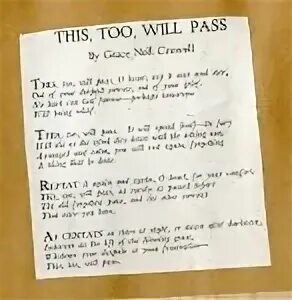 THIS, TOO, WILL PASS
By Grace Noll Crowell
THIS, too, will pass. O heart, say it over and over,
Out of your deepest sorrow, out of your grief,
No hurt can last forever—perhaps tomorrow
Will bring relief.
THIS, too, will pass. It will spend itself—
Its fury
Will die as the wind dies down with the
you will rest again, forgetting
A thing that
REPEAT it again and again, O heart, for your comfort,
This, too, will pass, as surely as passed before
The old forgotten pain, and the other sorrows
That once you bore.
AS CERTAIN as stars at night, or dawn after darkness,
Inherent as the lift of the blowing grass,
Whatever your despair or your frustration—
This, too, will pass.